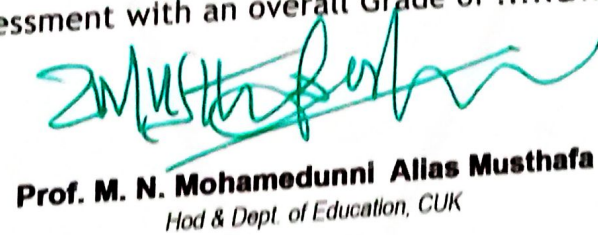 essment with an overall Grade of
Prof. M. N. Mohamedunni Alias Musthafa
Hod & Dept. of Education, CUK